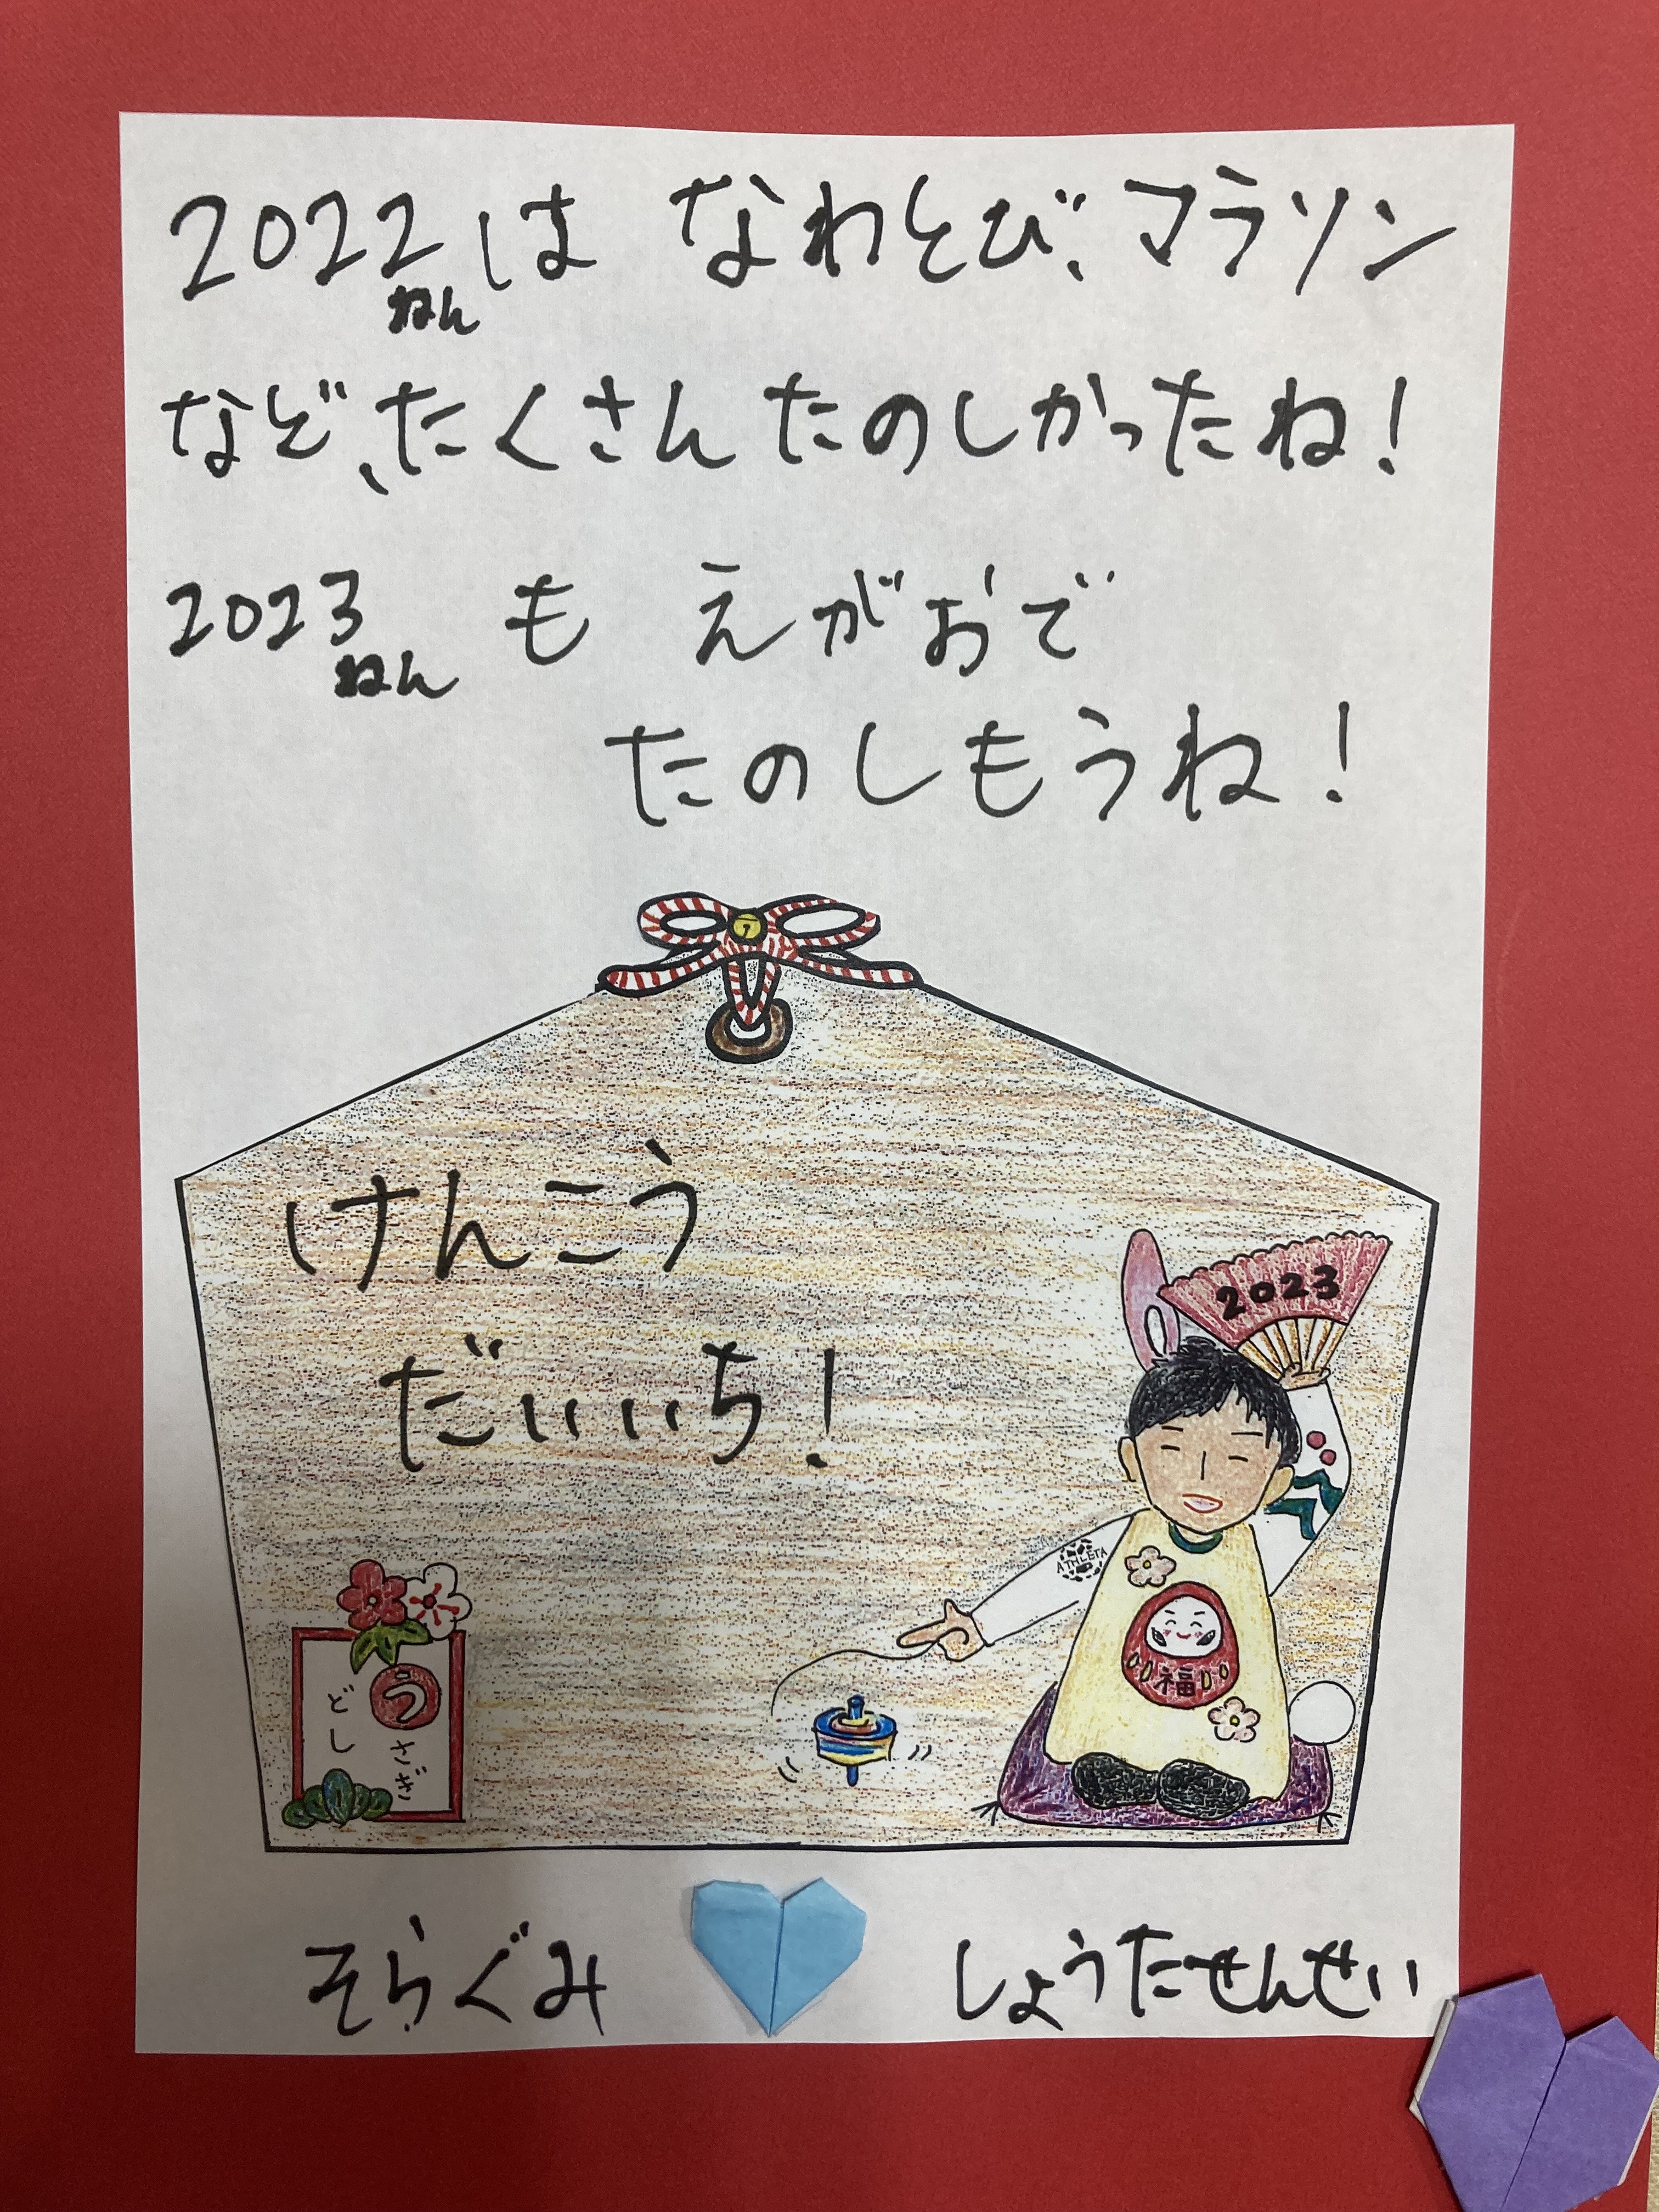 2022ねんは なわとび、マラソン
など、たくさん たのしかったね!
2023ねん も えがおで
たのしもうね!
けんこう
だいいち!
2023
ATHLETA
福
うさぎ
どし
そらぐみ
しょうたせんせい